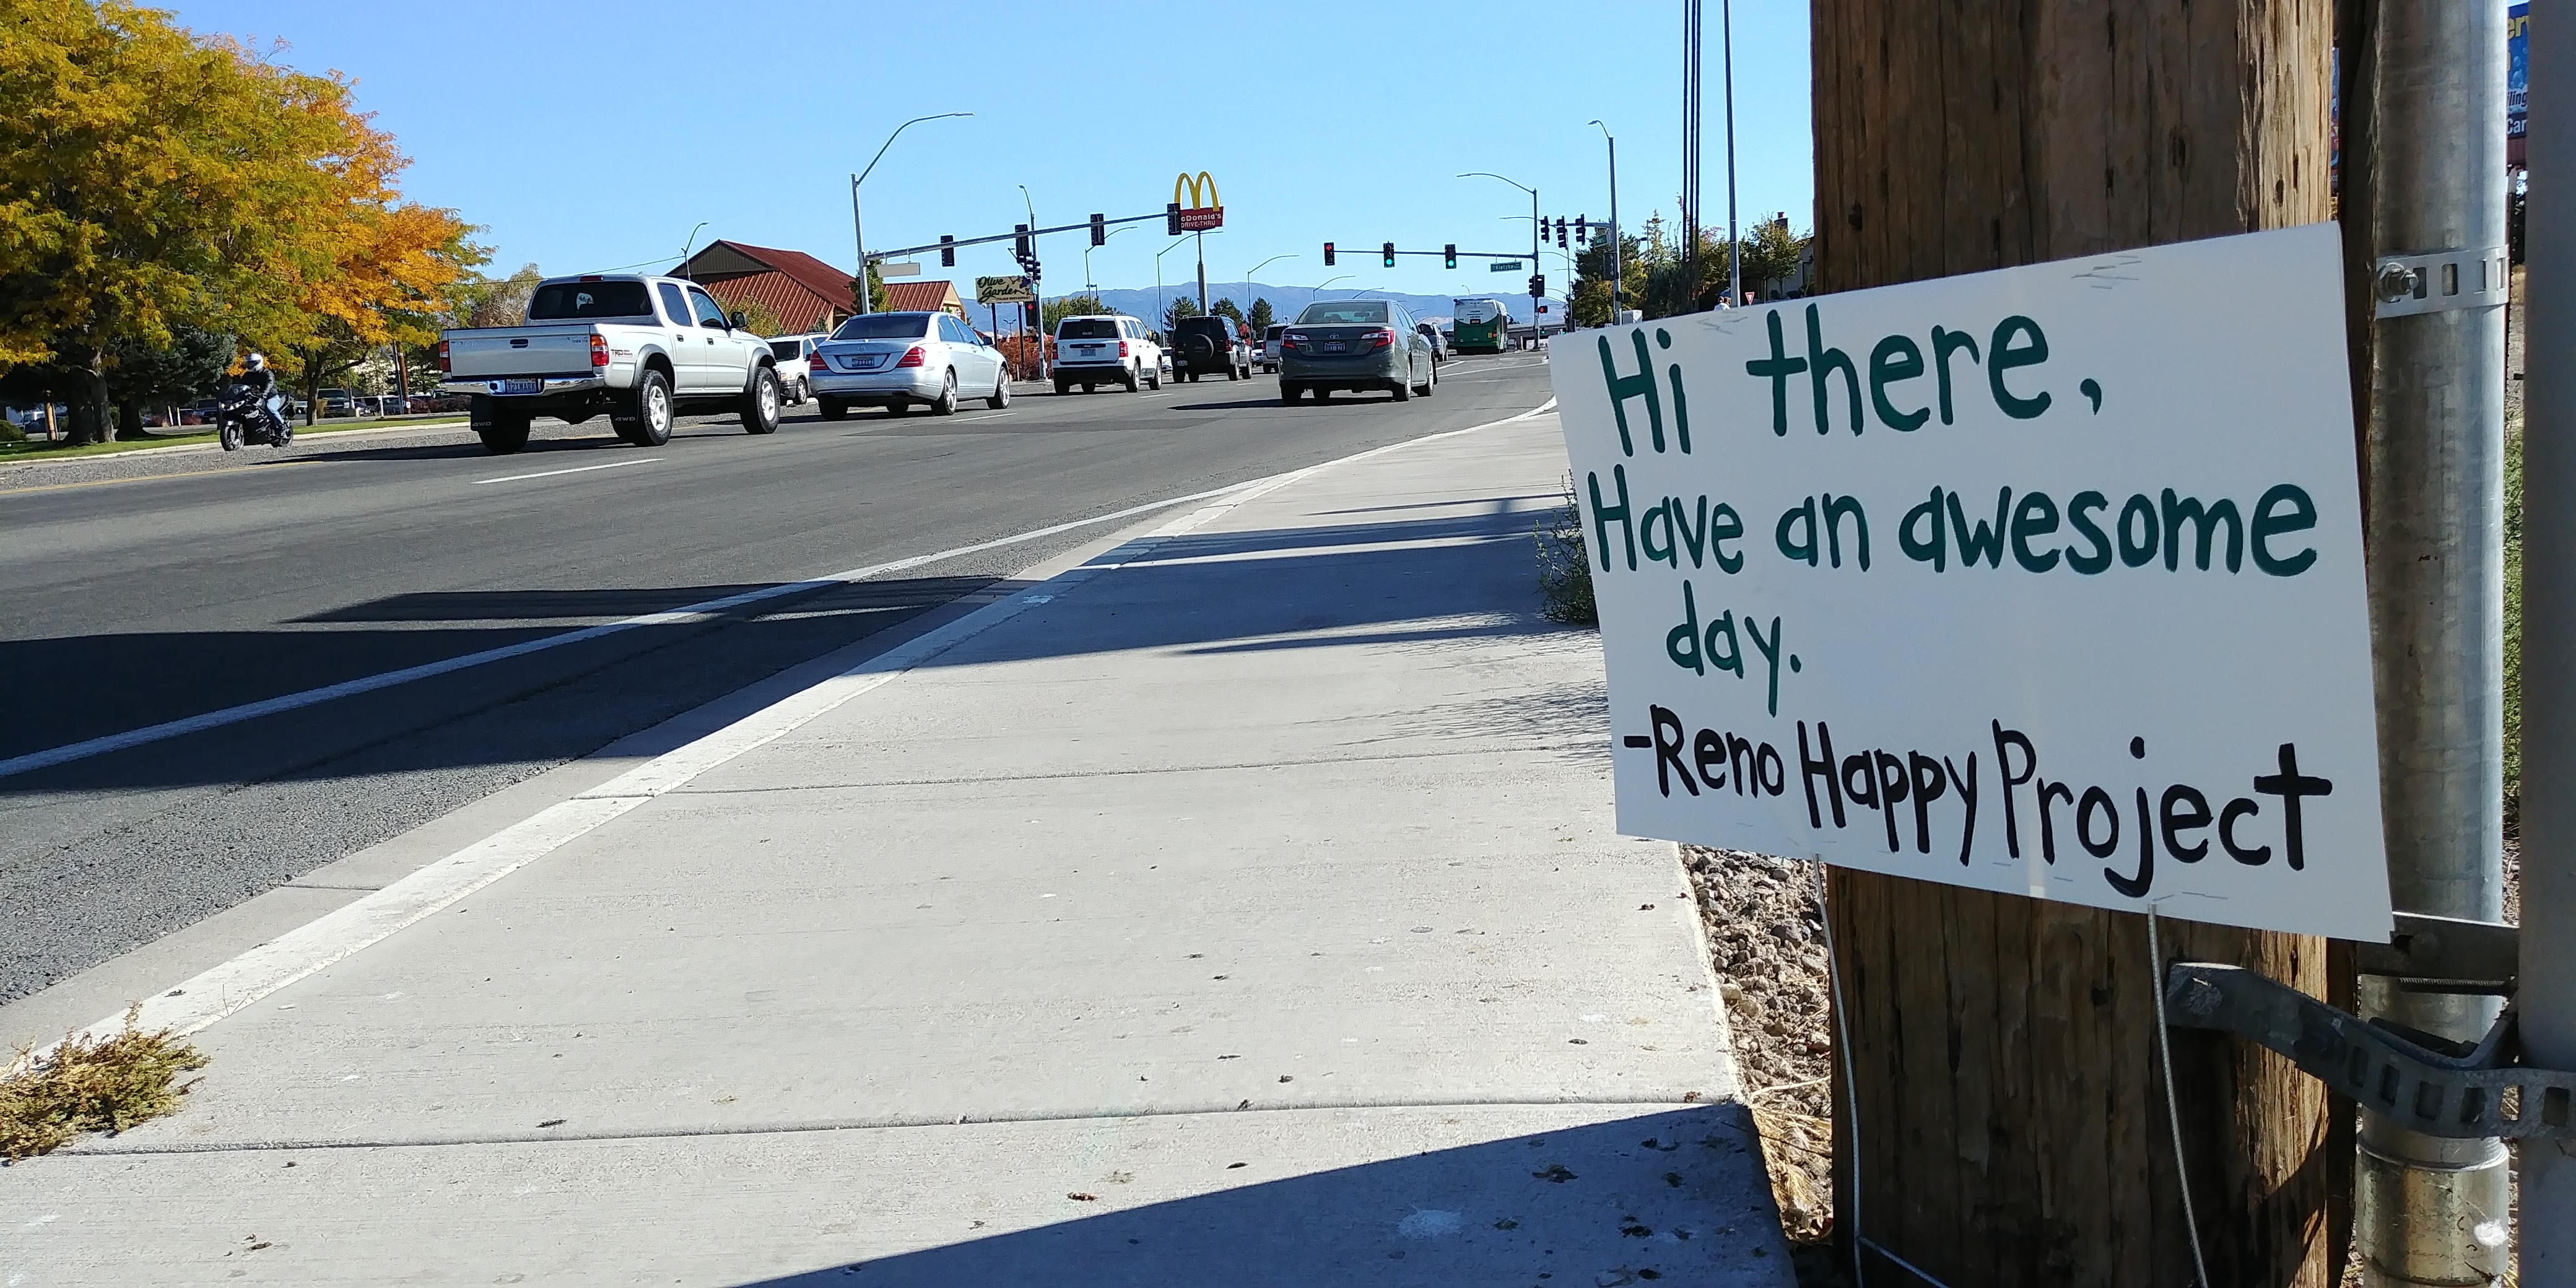 Hi there,
Have an awesome
day.
-Reno Happy Project
McDonald's
DRIVE-THRU
Olive
Garden
TRD
4WD
4WD